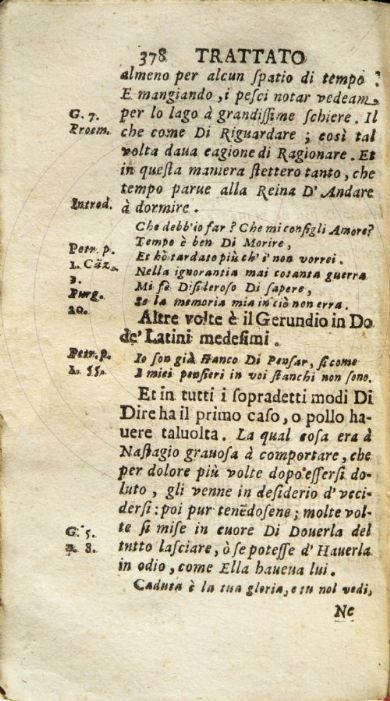 378 TRATTATO
almeno per alcun ſpatio di tempo ?
E mangiando, i peſci notar vedeam
G. 7. per lo lago à grandiſſime ſchiere. Il
Proem. che come Di Riguardare ; così tal
volta daua cagione di Ragionare. Et
in queſta maniera ſtettero tanto, che
tempo parue alla Reina D' Andare
Introd. à dormire.
Che debb'io far ? Che mi conſigli Amore?
Petr. p. Tempo è ben Di Morire,
1. Cãz. Et hò tardato più ch' i' non vorrei.
3. Nella ignorantia mai cotanta guerra
Purg. Mi fè Diſideroſo Di ſapere,
20. Se la memoria mia in ciò non erra.
Altre volte è il Gerundio in Do
de' Latini medeſimi.
Petr. p. Io ſon già ſtanco Di Penſar, ſi come
1. 55. I miei penſieri in voi ſtanchi non ſono.
Et in tutti i ſopradetti modi Di
Dire ha il primo caſo, o pollo ha-
uere taluolta. La qual coſa era à
Naſtagio grauoſa à comportare, che
per dolore più volte dopo eſſerſi do-
luto, gli venne in deſiderio d' vcci-
derſi : poi pur tenẽdoſene ; molte vol-
G. 5. te ſi miſe in cuore Di Douerla del
n. 8. tutto laſciare, ò ſe poteſſe d' Hauerla
in odio, come Ella haueua lui.
Caduta è la tua gloria, e tu nol vedi,
Ne